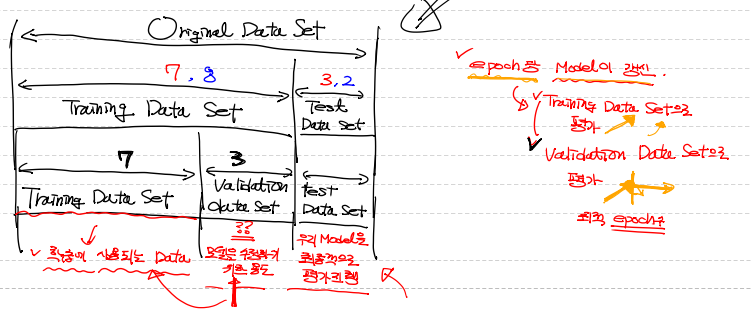 Original Data Set
7, 8
3, 2
Training Data Set
Test
Data Set
7
3
Training Data Set
Validation
data Set
test
Data Set
??
✓ 학습에 사용되는 Data
모델을 수정하기
위한 용도
우리 Model을
최종적으로
평가할 때
✓ epoch당 Model이 갱신.
✓ Training Data Set으로
평가
✓ Validation Data Set으로
평가
최적 epoch수